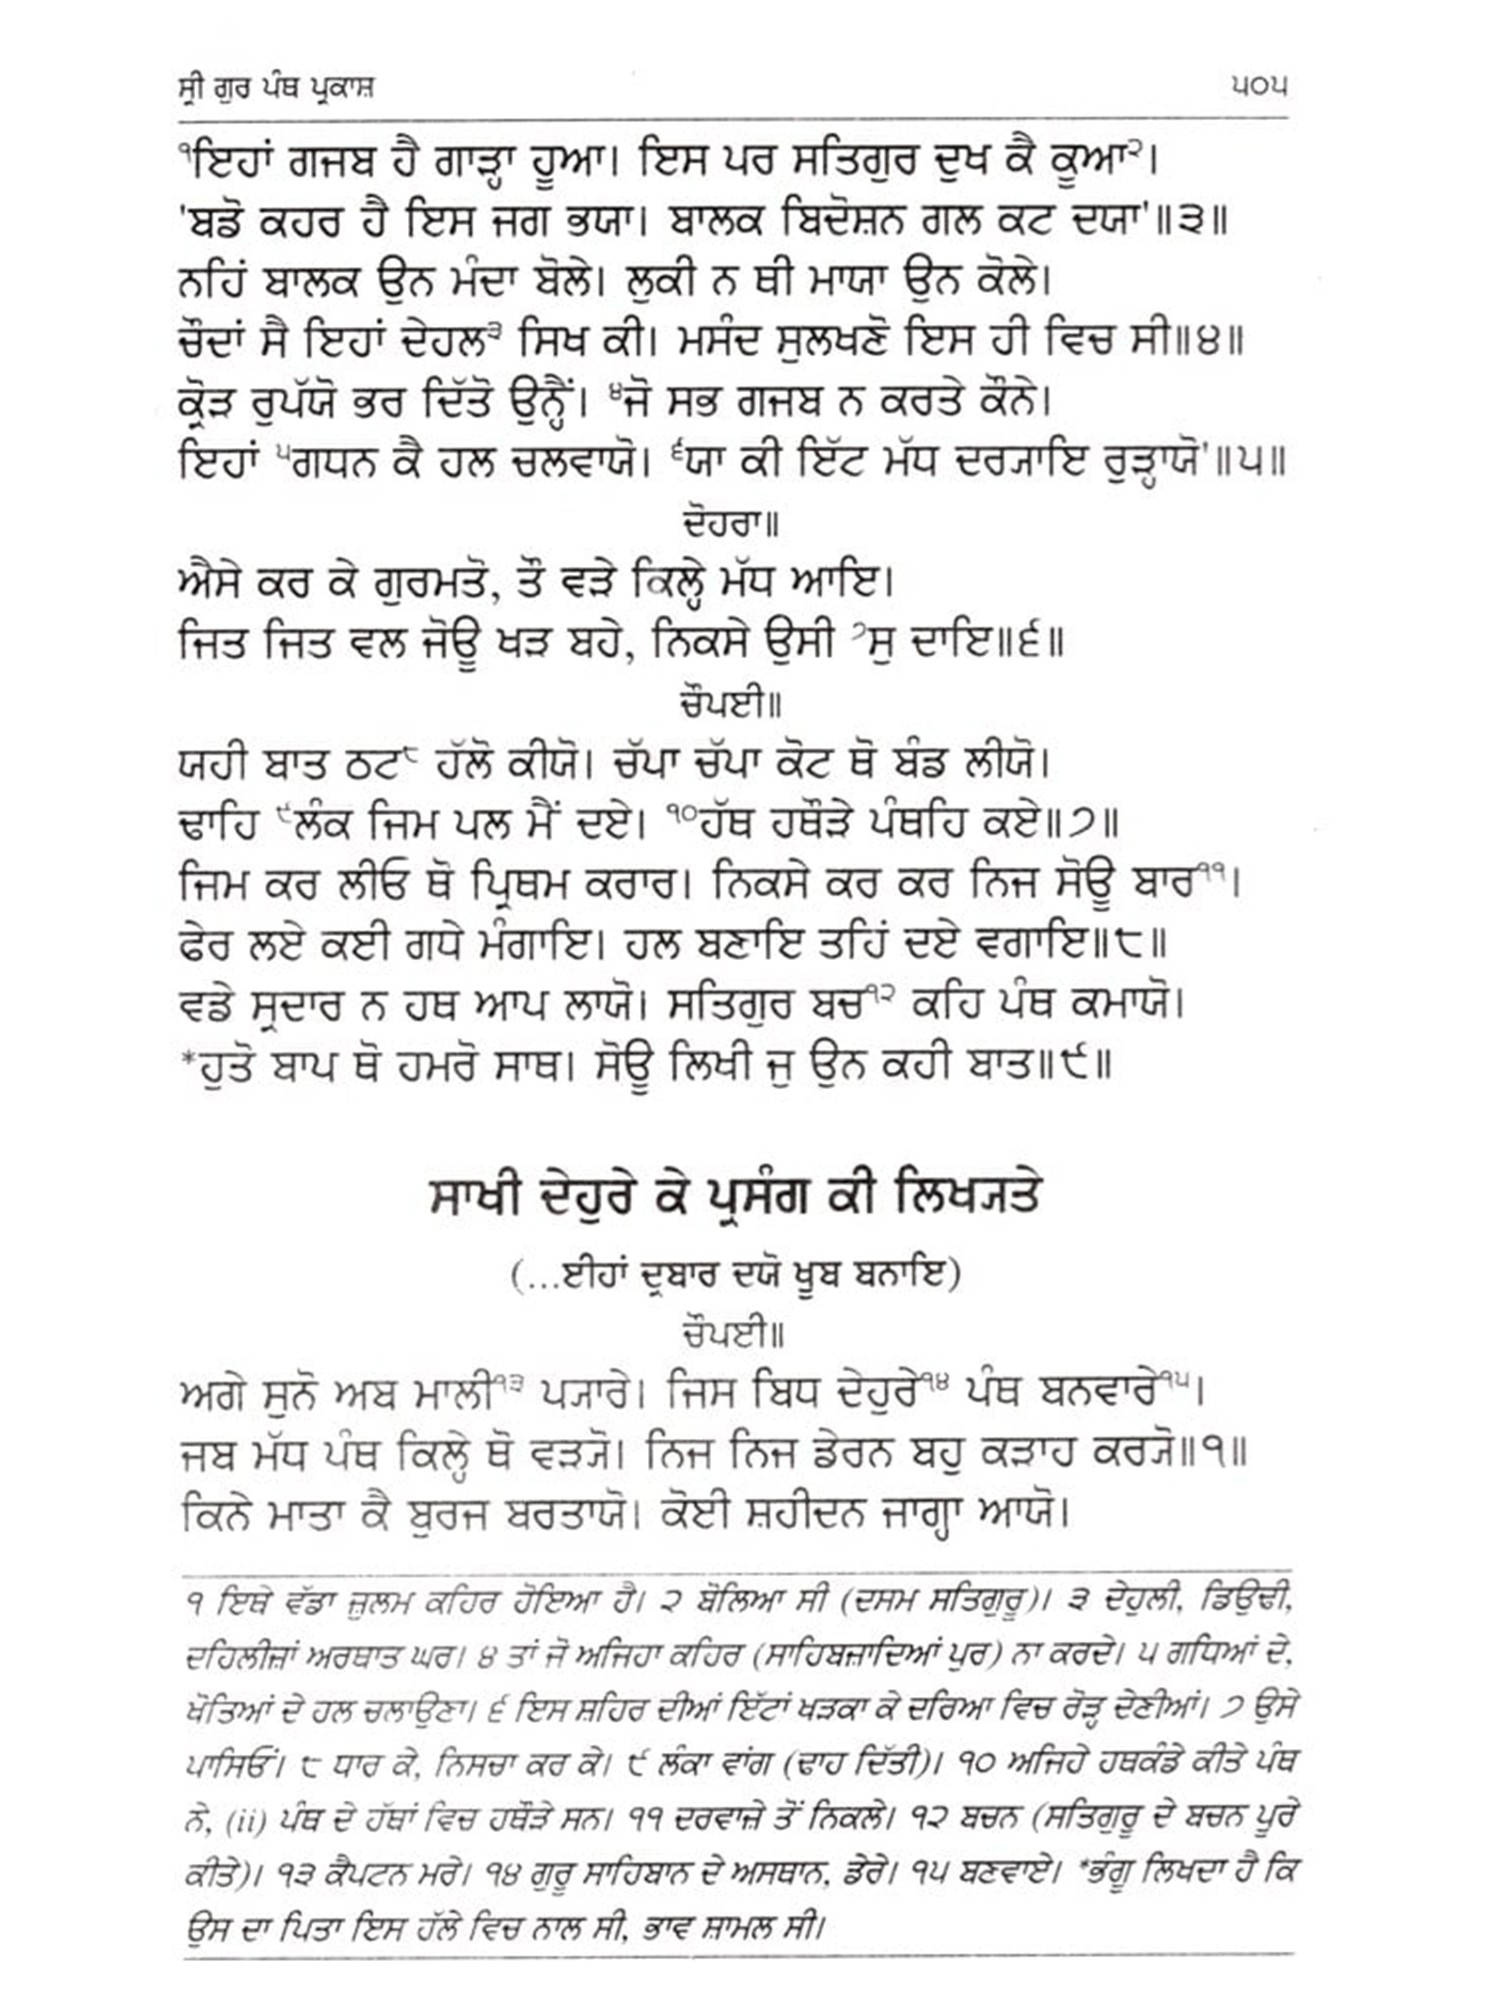 ਸ੍ਰੀ ਗੁਰ ਪੰਥ ਪ੍ਰਕਾਸ਼ ੫੦੫
੧ਇਹਾਂ ਗਜਬ ਹੈ ਗਾੜ੍ਹਾ ਹੂਆ। ਇਸ ਪਰ ਸਤਿਗੁਰ ਦੁਖ ਕੈ ਕੂਆ੨।
'ਬਡੋ ਕਹਰ ਹੈ ਇਸ ਜਗ ਭਯਾ। ਬਾਲਕ ਬਿਦੋਸ਼ਨ ਗਲ ਕਟ ਦਯਾ'॥੩॥
ਨਹਿਂ ਬਾਲਕ ਉਨ ਮੰਦਾ ਬੋਲੇ। ਲੁਕੀ ਨ ਥੀ ਮਾਯਾ ਉਨ ਕੋਲੇ।
ਚੌਦਾਂ ਸੈ ਇਹਾਂ ਦੇਹਲ੩ ਸਿਖ ਕੀ। ਮਸੰਦ ਸੁਲਖਣੋ ਇਸ ਹੀ ਵਿਚ ਸੀ॥੪॥
ਕ੍ਰੋੜ ਰੁਪੱਯੋ ਭਰ ਦਿੱਤੋ ਉਨ੍ਹੈਂ। ੪ਜੋ ਸਭ ਗਜਬ ਨ ਕਰਤੇ ਕੌਨੇ।
ਇਹਾਂ ੫ਗਧਨ ਕੈ ਹਲ ਚਲਵਾਯੋ। ੬ਯਾ ਕੀ ਇੱਟ ਮੱਧ ਦਰ੍ਯਾਇ ਰੁੜ੍ਹਾਯੋ'॥੫॥
ਦੋਹਰਾ॥
ਐਸੇ ਕਰ ਕੇ ਗੁਰਮਤੋ, ਤੌ ਵੜੇ ਕਿਲ੍ਹੇ ਮੱਧ ਆਇ।
ਜਿਤ ਜਿਤ ਵਲ ਜੋਊ ਖੜ ਬਹੇ, ਨਿਕਸੇ ਉਸੀ ੭ਸੁ ਦਾਇ॥੬॥
ਚੌਪਈ॥
ਯਹੀ ਬਾਤ ਠਟ੮ ਹੱਲੋ ਕੀਯੋ। ਚੱਪਾ ਚੱਪਾ ਕੋਟ ਥੋ ਬੰਡ ਲੀਯੋ।
ਢਾਹਿ ੯ਲੰਕ ਜਿਮ ਪਲ ਮੈਂ ਦਏ। ੧੦ਹੱਥ ਹਥੌੜੇ ਪੰਥਹਿ ਕਏ॥੭॥
ਜਿਮ ਕਰ ਲੀਓ ਥੋ ਪ੍ਰਿਥਮ ਕਰਾਰ। ਨਿਕਸੇ ਕਰ ਕਰ ਨਿਜ ਸੋਊ ਬਾਰ੧੧।
ਫੇਰ ਲਏ ਕਈ ਗਧੇ ਮੰਗਾਇ। ਹਲ ਬਣਾਇ ਤਹਿਂ ਦਏ ਵਗਾਇ॥੮॥
ਵਡੇ ਸ੍ਰਦਾਰ ਨ ਹਥ ਆਪ ਲਾਯੋ। ਸਤਿਗੁਰ ਬਚ੧੨ ਕਹਿ ਪੰਥ ਕਮਾਯੋ।
*ਹੁਤੋ ਬਾਪ ਥੋ ਹਮਰੋ ਸਾਥ। ਸੋਊ ਲਿਖੀ ਜੁ ਉਨ ਕਹੀ ਬਾਤ॥੯॥
ਸਾਖੀ ਦੇਹੁਰੇ ਕੇ ਪ੍ਰਸੰਗ ਕੀ ਲਿਖ੍ਯਤੇ
(...ਈਹਾਂ ਦ੍ਰਬਾਰ ਦਯੋ ਖ਼ੂਬ ਬਨਾਇ)
ਚੌਪਈ॥
ਅਗੇ ਸੁਨੋ ਅਬ ਮਾਲੀ੧੩ ਪ੍ਯਾਰੇ। ਜਿਸ ਬਿਧ ਦੇਹੁਰੇ੧੪ ਪੰਥ ਬਨਵਾਰੇ੧੫।
ਜਬ ਮੱਧ ਪੰਥ ਕਿਲ੍ਹੇ ਥੋ ਵੜ੍ਯੋ। ਨਿਜ ਨਿਜ ਡੇਰਨ ਬਹੁ ਕੜਾਹ ਕਰ੍ਯੋ॥੧॥
ਕਿਨੇ ਮਾਤਾ ਕੈ ਬੁਰਜ ਬਰਤਾਯੋ। ਕੋਈ ਸ਼ਹੀਦਨ ਜਾਗ੍ਹਾ ਆਯੋ।
੧ ਇਥੇ ਵੱਡਾ ਜ਼ੁਲਮ ਕਹਿਰ ਹੋਇਆ ਹੈ। ੨ ਬੋਲਿਆ ਸੀ (ਦਸਮ ਸਤਿਗੁਰੂ)। ੩ ਦੇਹੁਲੀ, ਡਿਉਢੀ,
ਦਹਿਲੀਜ਼ਾਂ ਅਰਥਾਤ ਘਰ। ੪ ਤਾਂ ਜੋ ਅਜਿਹਾ ਕਹਿਰ (ਸਾਹਿਬਜ਼ਾਦਿਆਂ ਪੁਰ) ਨਾ ਕਰਦੇ। ੫ ਗਧਿਆਂ ਦੇ,
ਖੋਤਿਆਂ ਦੇ ਹਲ ਚਲਾਉਣਾ। ੬ ਇਸ ਸ਼ਹਿਰ ਦੀਆਂ ਇੱਟਾਂ ਖੜਕਾ ਕੇ ਦਰਿਆ ਵਿਚ ਰੋੜ੍ਹ ਦੇਣੀਆਂ। ੭ ਉਸੇ
ਪਾਸਿਓਂ। ੮ ਧਾਰ ਕੇ, ਨਿਸਚਾ ਕਰ ਕੇ। ੯ ਲੰਕਾ ਵਾਂਗ (ਢਾਹ ਦਿੱਤੀ)। ੧੦ ਅਜਿਹੇ ਹਥਕੰਡੇ ਕੀਤੇ ਪੰਥ
ਨੇ, (ii) ਪੰਥ ਦੇ ਹੱਥਾਂ ਵਿਚ ਹਥੌੜੇ ਸਨ। ੧੧ ਦਰਵਾਜ਼ੇ ਤੋਂ ਨਿਕਲੇ। ੧੨ ਬਚਨ (ਸਤਿਗੁਰੂ ਦੇ ਬਚਨ ਪੂਰੇ
ਕੀਤੇ)। ੧੩ ਕੈਪਟਨ ਮਰੇ। ੧੪ ਗੁਰੂ ਸਾਹਿਬਾਨ ਦੇ ਅਸਥਾਨ, ਡੇਰੇ। ੧੫ ਬਣਵਾਏ। *ਭੰਗੂ ਲਿਖਦਾ ਹੈ ਕਿ
ਉਸ ਦਾ ਪਿਤਾ ਇਸ ਹੱਲੇ ਵਿਚ ਨਾਲ ਸੀ, ਭਾਵ ਸ਼ਾਮਲ ਸੀ।